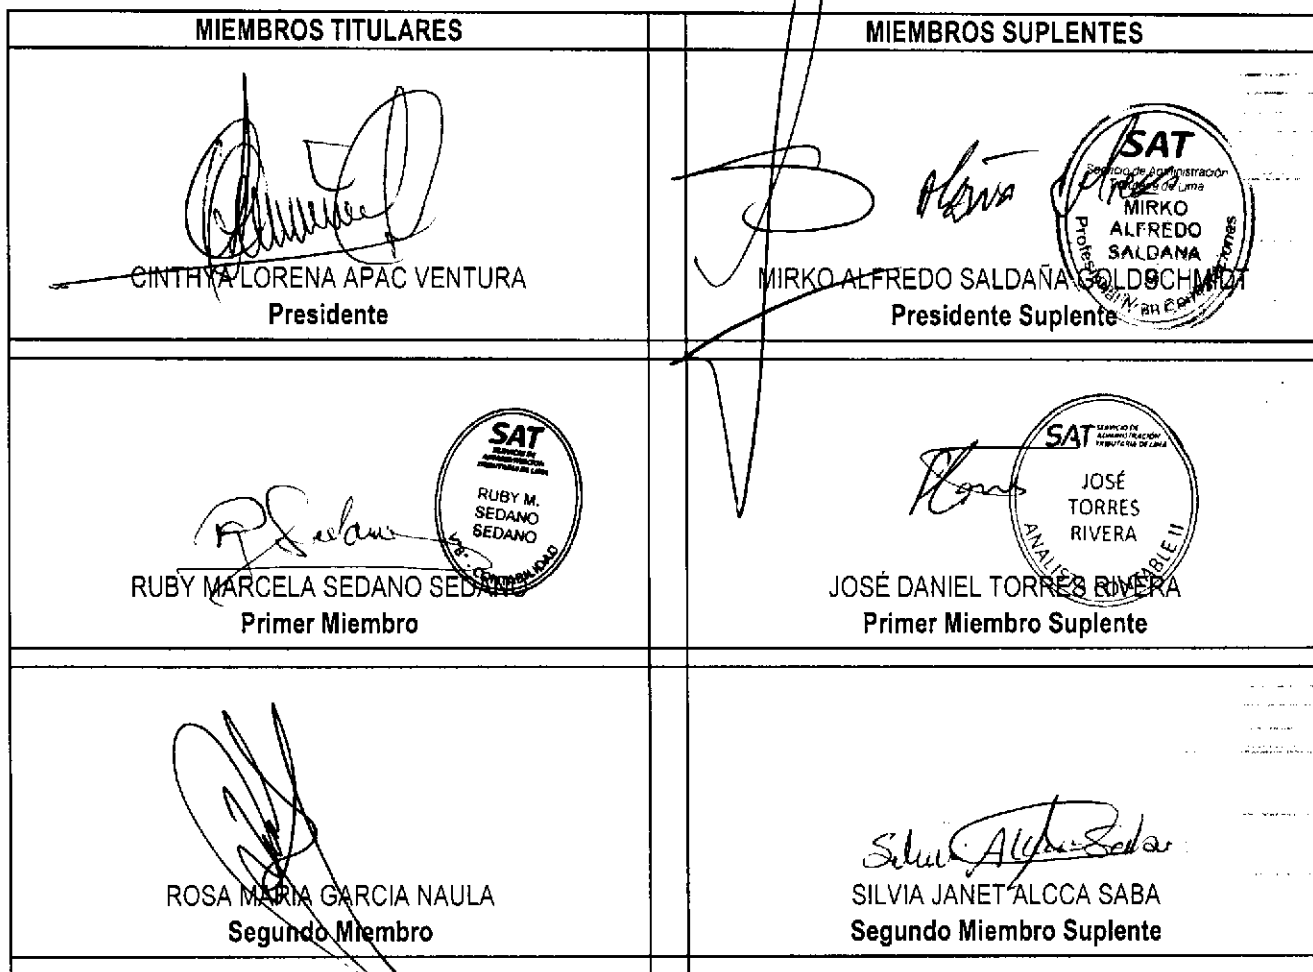 MIEMBROS TITULARES
MIEMBROS SUPLENTES
CINTHYA LORENA APAC VENTURA
Presidente
SAT
Servicio de Administración
Tributaria de Lima
MIRKO
ALFREDO
SALDAÑA
G
Profesional IV en Contrataciones
MIRKO ALFREDO SALDAÑA GOLDSCHMIDT
Presidente Suplente
SAT
SERVICIO DE
ADMINISTRACIÓN
TRIBUTARIA DE LIMA
RUBY M.
SEDANO
SEDANO
CONTABILIDAD
RUBY MARCELA SEDANO SEDANO
Primer Miembro
SAT SERVICIO DE
ADMINISTRACIÓN
TRIBUTARIA DE LIMA
JOSÉ
TORRES
RIVERA
ANALISTA CONTABLE II
JOSÉ DANIEL TORRES RIVERA
Primer Miembro Suplente
ROSA MARIA GARCIA NAULA
Segundo Miembro
SILVIA JANET ALCCA SABA
Segundo Miembro Suplente